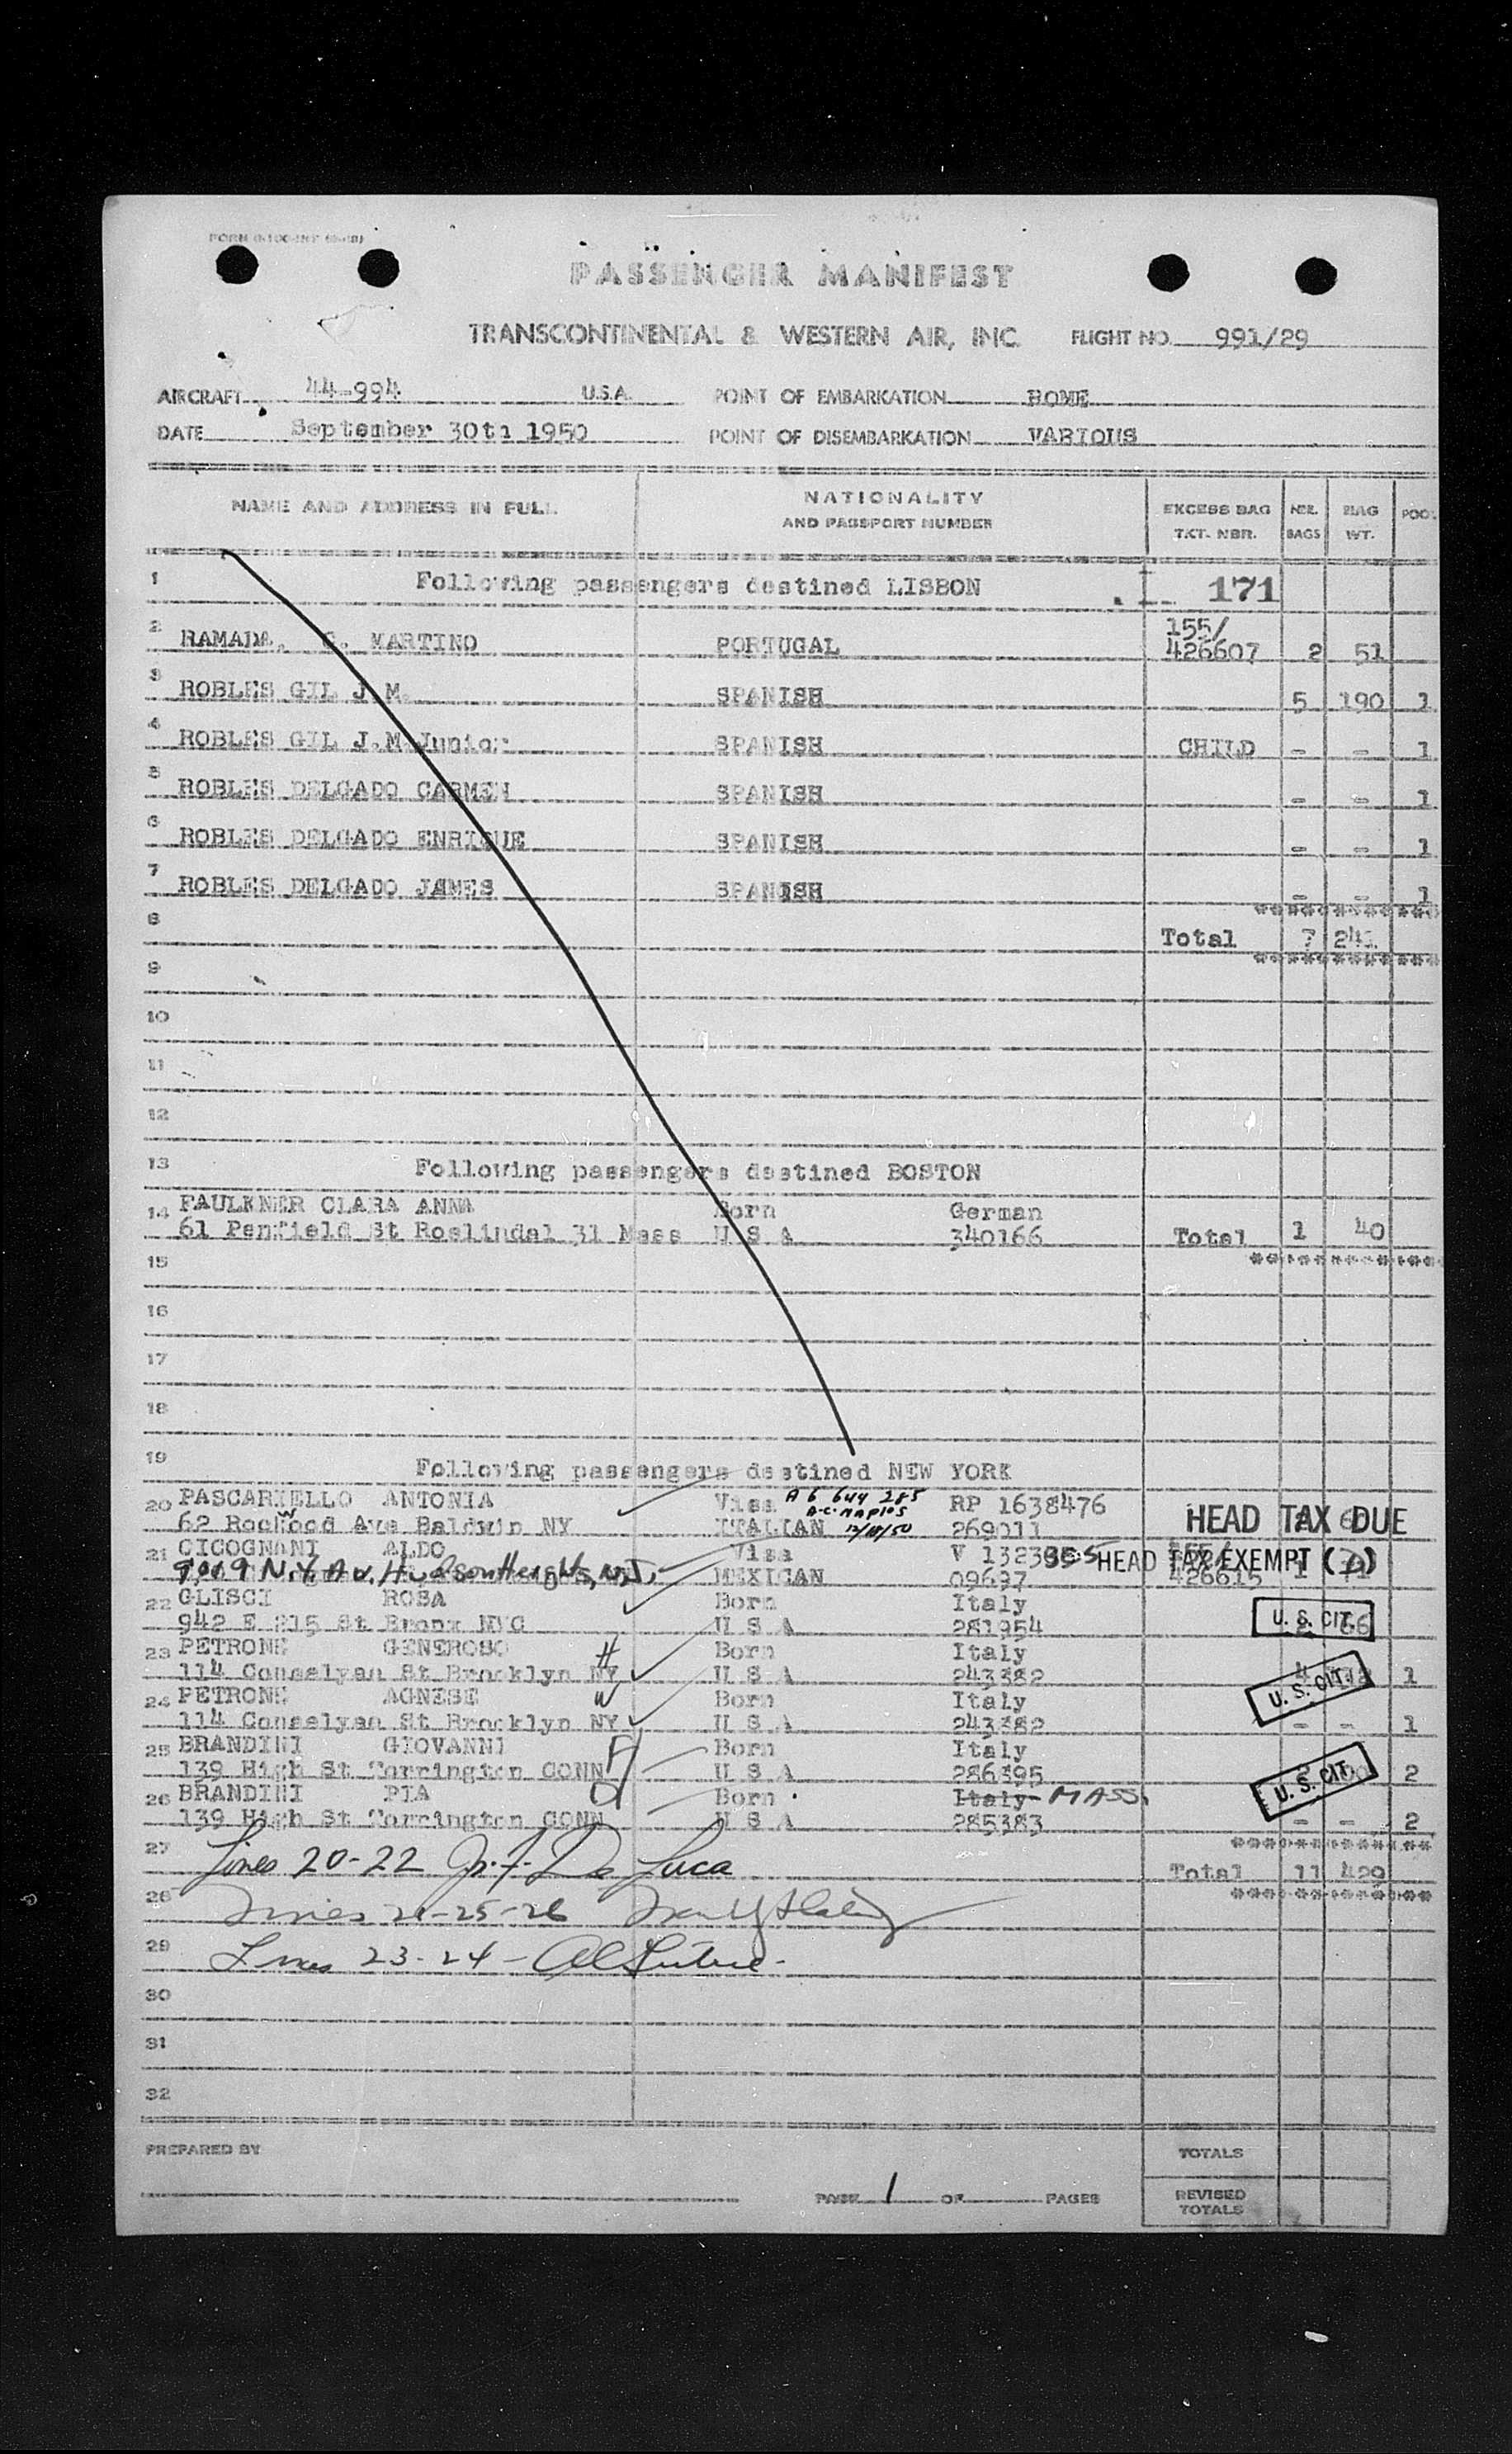 PASSENGER MANIFEST
TRANSCONTINENTAL & WESTERN AIR, INC. FLIGHT NO. 991/29
AIRCRAFT 44-994 U.S.A. POINT OF EMBARKATION ROME
DATE September 30th 1950 POINT OF DISEMBARKATION VARIOUS
NAME AND ADDRESS IN FULL NATIONALITY AND PASSPORT NUMBER EXCESS BAG TKT. NBR. NBR. BAGS BAG WT. POOL
1 Following passengers destined LISBON 171
2 RAMADA, G. MARTINO PORTUGAL 155/426607 2 51
3 ROBLES GIL J.M. SPANISH 5 190 1
4 ROBLES GIL J.M.Junior SPANISH CHILD - - 1
5 ROBLES DELGADO CARMEN SPANISH - - 1
6 ROBLES DELGADO ENRIQUE SPANISH - - 1
7 ROBLES DELGADO JAMES SPANISH - - 1
8 Total 7 241
9
10
11
12
13 Following passengers destined BOSTON
14 FAULKNER CLARA ANNA Born German
61 Penfield St Roslindal 31 Mass U S A 340166 Total 1 40
15
16
17
18
19 Following passengers destined NEW YORK
20 PASCARIELLO ANTONIA Visa A6 644 285 RP 1638476
62 Rockwood Ave Baldwin NY ITALIAN 12/18/50 269011 HEAD TAX DUE
21 CICOGNANI ALDO Visa V 132
9009 N.Y. Av. Hudson Heights, N.J. MEXICAN 09697 HEAD TAX EXEMPT 426615 1
22 GLISCI ROSA Born Italy
942 E 215 St Bronx NYC U S A 281954 U.S. CIT. 66
23 PETRONE GENEROSO H Born Italy
114 Conselyan St Brooklyn NY U S A 243382 4 1
24 PETRONE AGNESE W Born Italy U.S. CIT.
114 Conselyan St Brooklyn NY U S A 243382 - - 1
25 BRANDINI GIOVANNI Born Italy
139 High St Torrington CONN U S A 286395 U.S. CIT. 2
26 BRANDINI PIA Born Italy MASS.
139 High St Torrington CONN U S A 285383 - - 2
27 Lines 20-22 De Luca Total 11 429
28 Lines 21-25-26
29 Lines 23-24-
30
31
32
PREPARED BY TOTALS
PAGE 1 OF PAGES REVISED TOTALS